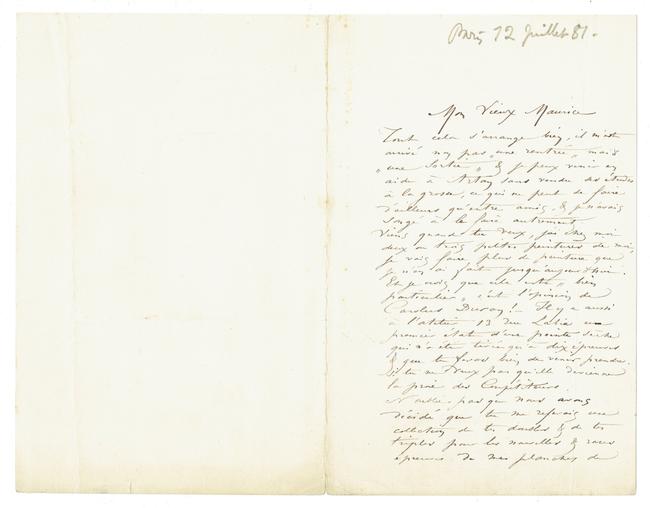 Paris 12 Juillet 81.
Mon Vieux Maurice
Tout cela s'arrange bien, il m'est
arrivé non pas "une rentrée" mais
"une sortie" & je peux venir en
aide à Artan sans vendre ses études
à la grosse, ce qui ne peut se faire
d'ailleurs qu'entre amis, & je n'avais
songé à le faire autrement.
Viens quand tu veux, j'ai chez moi
deux ou trois petites peintures de moi,
je vais faire plus de peinture que
je n'en ai fait jusqu'aujourd'hui.
Et je crois que cela est "bien
particulier", c'est l'opinion de
Carolus Duran! - Il y a aussi
à l'atelier 13 rue un
premier état d'une pointe sèche
qui n'a été tirée qu'à dix épreuves
& que tu feras bien de venir prendre.
Si tu ne veux pas qu'elle devienne
la proie des Compétiteurs.
N'oublie pas que nous avons
décidé que tu me referais une
collection de tes doubles & de tes
triples pour les nouvelles & rares
épreuves de mes planches de